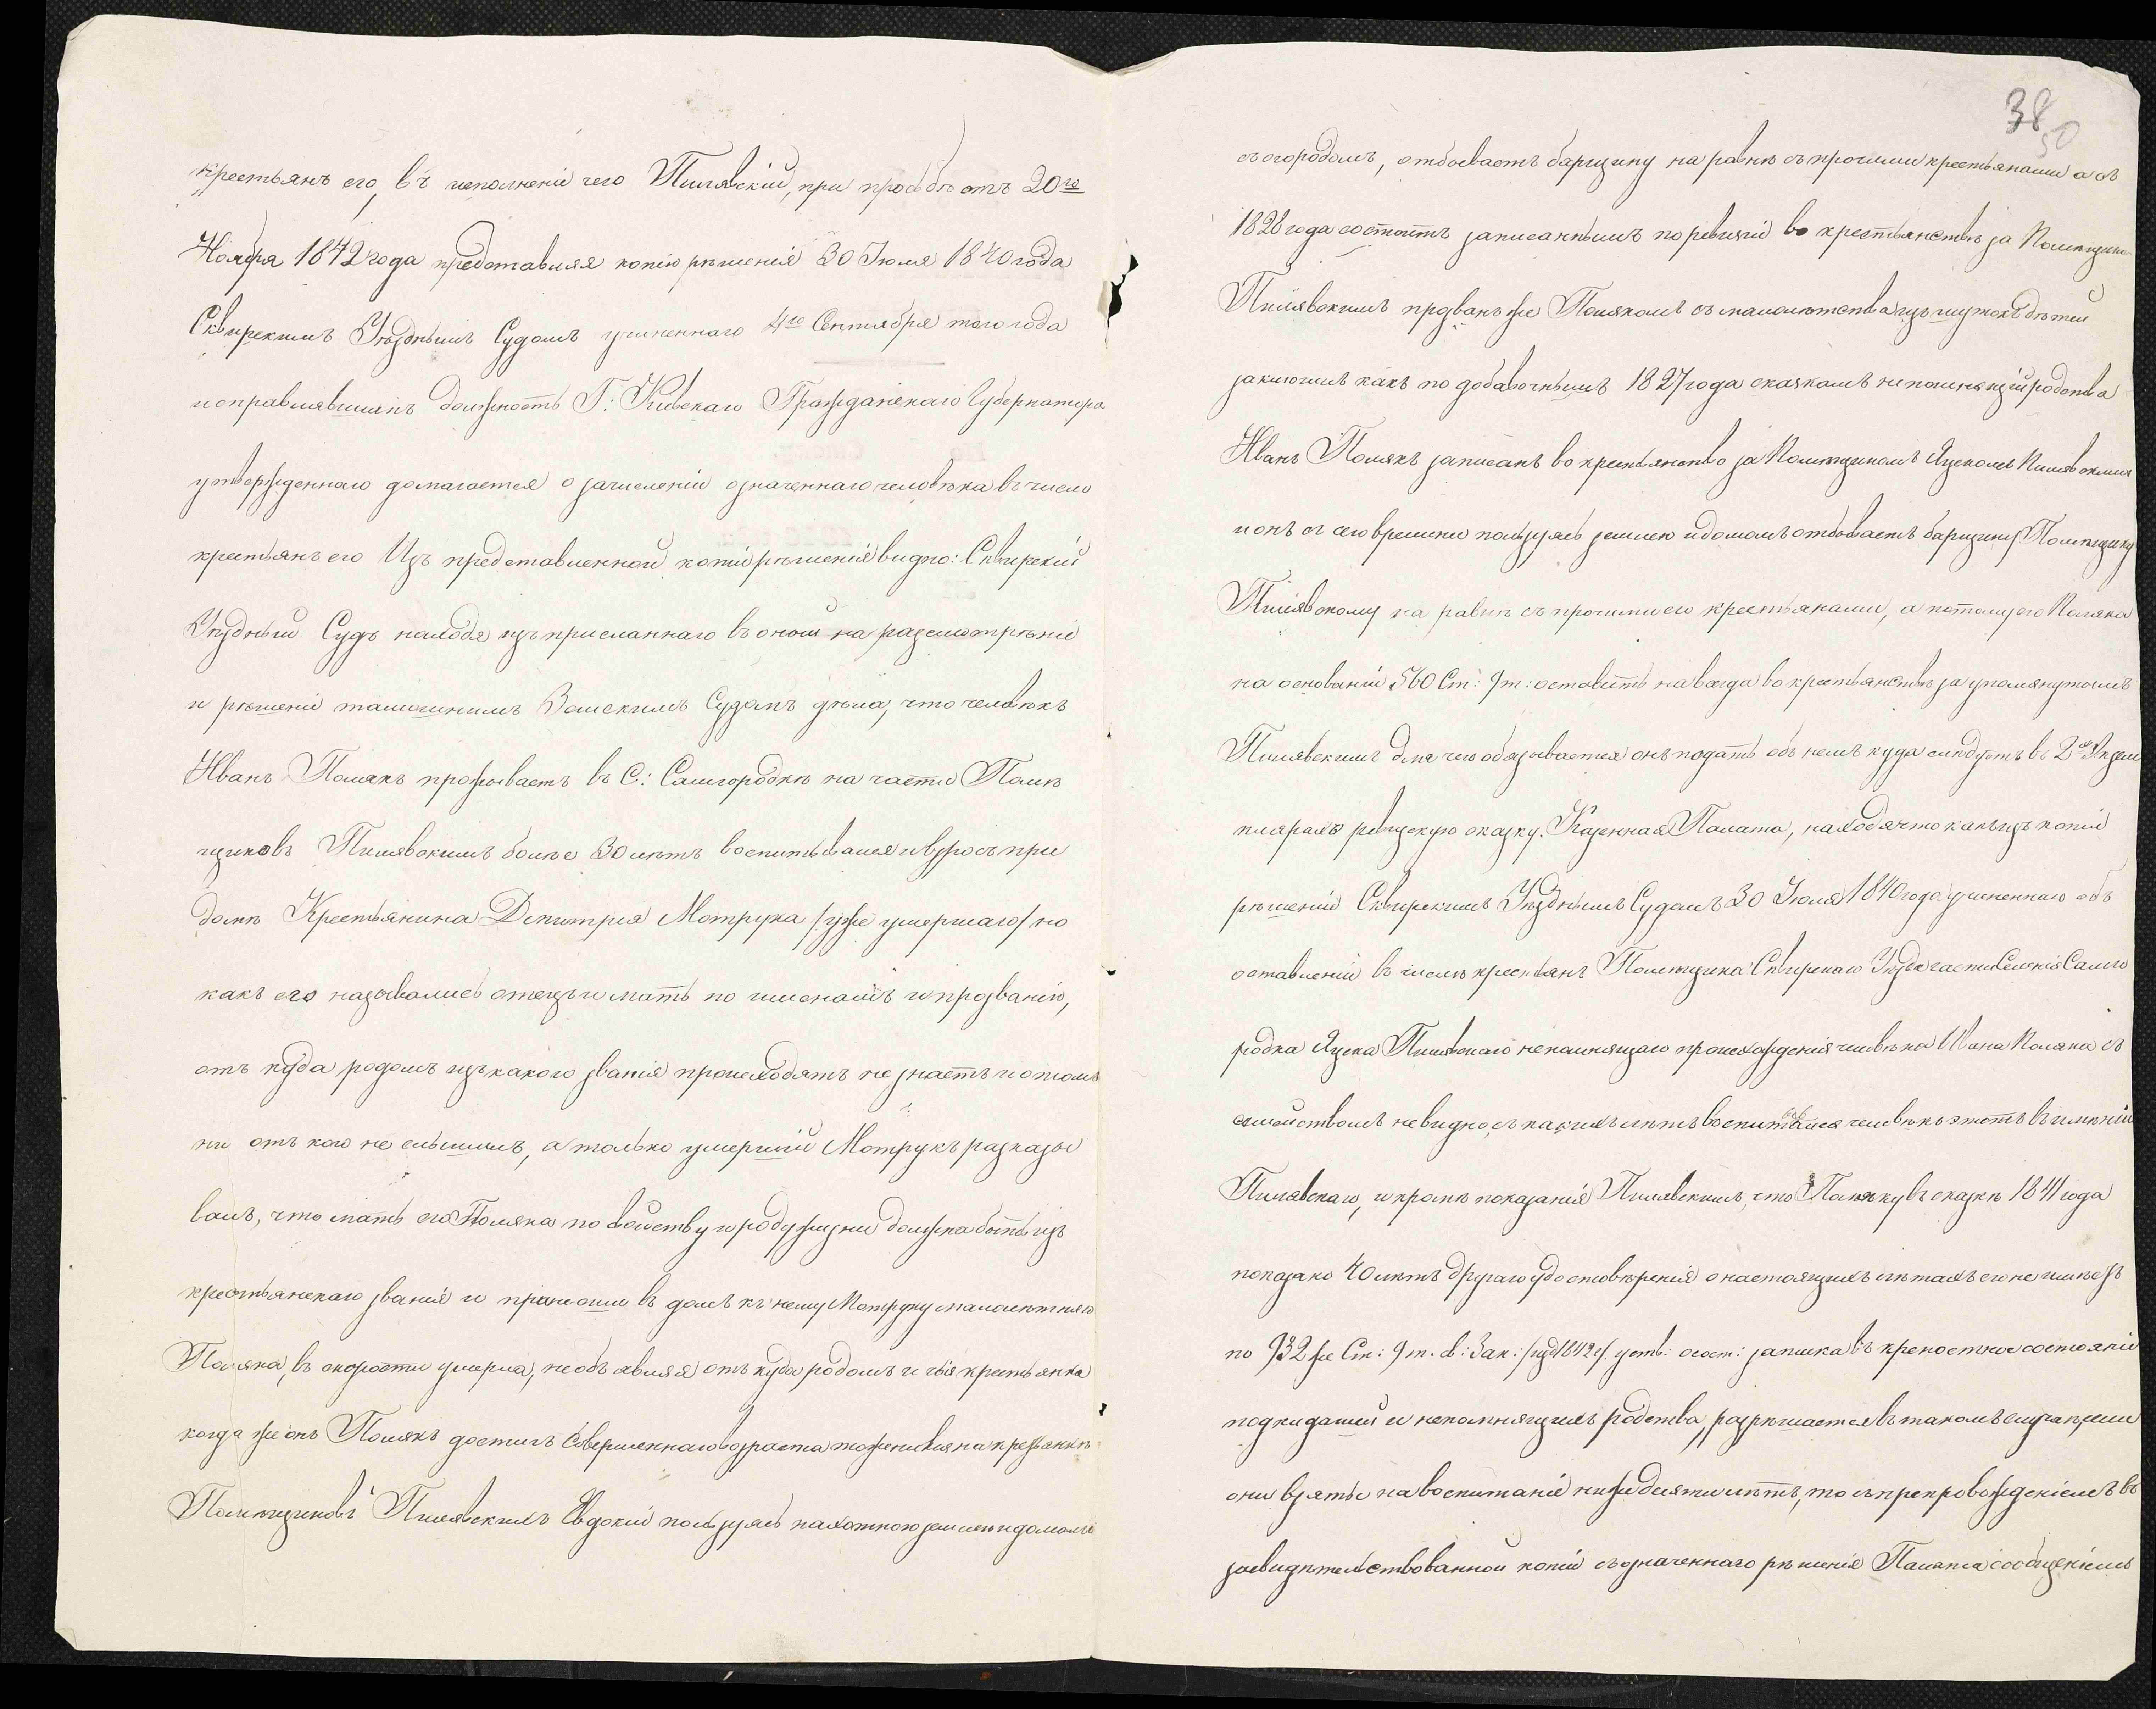 крестьянъ его, въ исполненіи чего Пилявскій, при прозьбѣ отъ 20го
Ноября 1842 года представляя копію рѣшенія 30 Іюля 1840 года
Сквирскимъ Уѣзднымъ Судомъ учиненнаго 4го Сентября того года
исправлявшимъ должность Г: Кіевскаго Гражданскаго Губернатора
утвержденнаго домагается о зачисленіи означеннаго человѣка въ число
крестьянъ его Изъ представленной копіи рѣшенія видно: Сквирскій
Уѣздный Судъ находя изъ присланнаго въ оный на разсмотрѣніе
и рѣшеніе тамошнимъ Земскимъ Судомъ дѣла, что человѣкъ
Иванъ Полякъ проживаетъ въ С: Самгородкѣ на части Помѣ
щиковъ Пилявскимъ болѣе 30 лѣтъ воспитывался и взросъ при
домѣ Крестьянина Дмитрія Мотрука /уже умершаго/ но
какъ его назывались отецъ и мать по именамъ и прозванію,
отъ куда родомъ изъ какого званія происходятъ не знаетъ и о томъ
ни отъ кого не слышилъ, а только умершій Мотрукъ разказы
валъ, что мать его Поляка по свойству и роду жизни должна быть изъ
крестьянскаго званія и пришедши въ домъ къ нему Мотруку малолѣтняго
Поляка, въ скорости умерла, необъявляя отъ куда родомъ и чія крестьянка
когда же онъ Полякъ достигъ совершеннаго возраста то женился на крестьянкѣ
Помѣщиковъ Пилявскихъ Евдокіи пользуясь пахотною землею и домомъ
38
50
съ огородомъ, отбываетъ барщину на равнѣ съ прочими крестьянами а съ
1828 года состоитъ записаннымъ по ревизіи во крестьянствѣ за Помѣщикомъ
Пилявскимъ прозванъ же Полякомъ съ малолѣтства изъ шутокъ дѣтей
заключилъ какъ по добавочнымъ 1827 года сказкамъ непомнящій родства
Иванъ Полякъ записанъ во крестьянство за Помѣщикомъ Яцекомъ Пилявскимъ
и онъ съ сего времени пользуясь землею и домомъ отбываетъ барщину Помѣщику
Пилявскому на равнѣ съ прочими его крестьянами, а потому его Поляка
на основаніи 560 Ст: 9 т: оставить навсегда во крестьянствѣ за упомянутымъ
Пилявскимъ для чего обязывается онъ подать объ немъ куда слѣдуетъ въ 2хъ Экзем
плярахъ ревизскую сказку. Казенная Палата, находя что какъ изъ копіи
рѣшенія Сквирскимъ Уѣзднымъ Судомъ 30 Іюля 1840 года учиненнаго объ
оставленіи въ числѣ крестьянъ Помѣщика Сквирскаго Уѣзда части Селенія Самго
родка Яцека Пилявскаго непомнящаго происхожденія человѣка Ивана Поляка съ
семействомъ не видно, съ какихъ лѣтъ воспитывался человѣкъ этотъ въ имѣніи
Пилявскаго, и кромѣ показанія Пилявскимъ, что Поляку въ сказкѣ 1841 года
показано 40 лѣтъ другаго удостовѣренія о настоящихъ лѣтахъ его не имѣетъ
по 932 же Ст: 9 т. Св: Зак: /изд 1842 г/ уст: о сост: записка въ крепостное состояніе
подкидышей и непомнящихъ родства, разрѣшается въ такомъ случаѣ, если
они взяты на воспитаніе ниже десяти лѣтъ, то съ препровожденіемъ въ
засвидѣтельствованной копіи съ означеннаго рѣшенія Палата сообщеніемъ